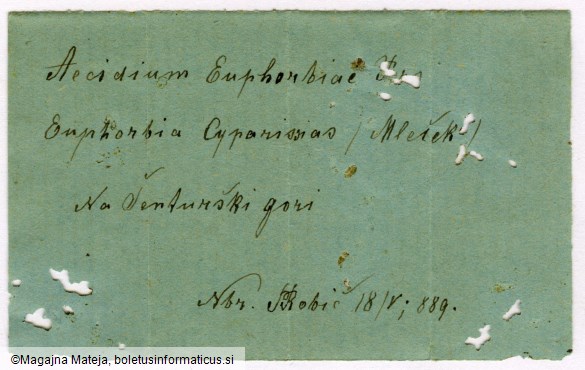 Aecidium Euphorbiae
Euphorbia Cyparissias (Mleček)
Na Šenturški gori
Nbr. SRobič 18/V; 889.
©Magajna Mateja, boletusinformaticus.si